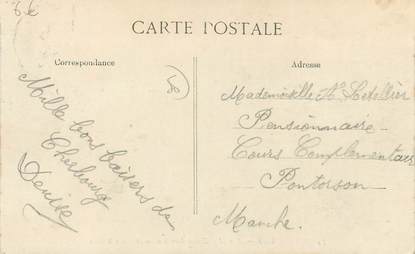 6€
CARTE POSTALE
Correspondance
Adresse
Mille bons baisers de
Cherbourg
Denise
Mademoiselle A. Letellier
Pensionnaire
Cours Complémentaire
Pontorson
Manche.